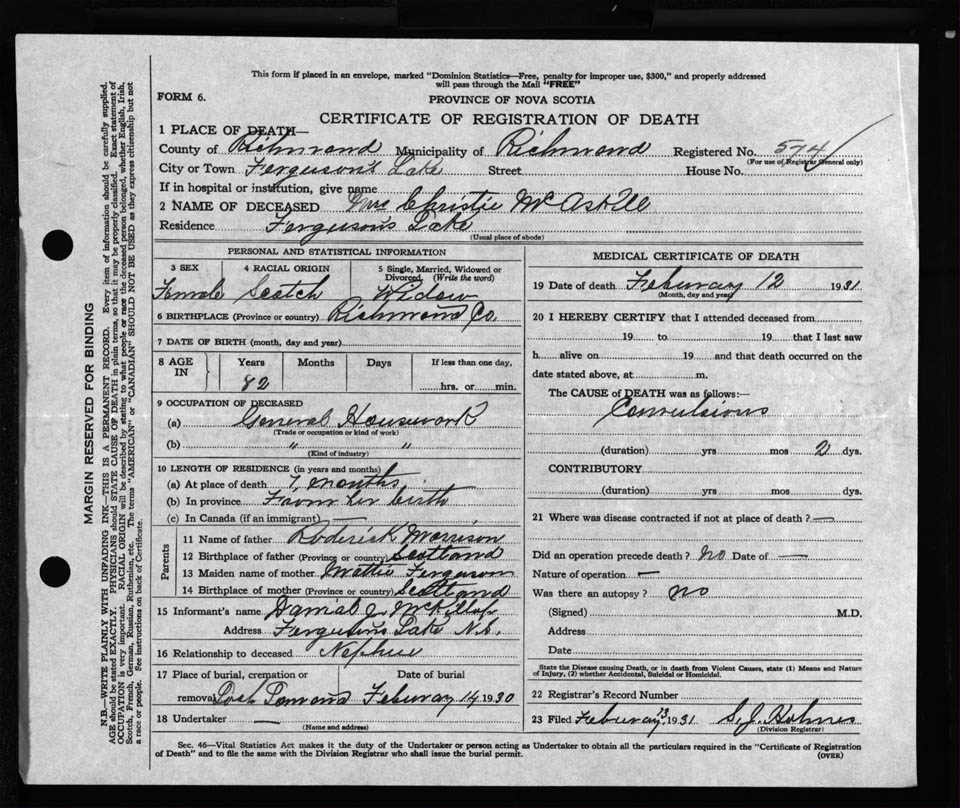 This form if placed in an envelope, marked "Dominion Statistics—Free, penalty for improper use, $300," and properly addressed
will pass through the Mail "FREE"
FORM 6.
PROVINCE OF NOVA SCOTIA
CERTIFICATE OF REGISTRATION OF DEATH
1 PLACE OF DEATH—
County of Richmond Municipality of Richmond Registered No. 574
(For use of Registrar General only)
City or Town Ferguson's Lake Street House No.
If in hospital or institution, give name
2 NAME OF DECEASED Mrs Christie McAskill
Residence Ferguson's Lake
(Usual place of abode)
PERSONAL AND STATISTICAL INFORMATION
3 SEX 4 RACIAL ORIGIN 5 Single, Married, Widowed or
Divorced (Write the word)
Female Scotch Widow
6 BIRTHPLACE (Province or country) Richmond Co.
7 DATE OF BIRTH (month, day and year)
8 AGE IN Years Months Days If less than one day,
82 hrs. or min.
9 OCCUPATION OF DECEASED
(a) General Housework
(Trade or occupation or kind of work)
(b) " "
(Kind of industry)
10 LENGTH OF RESIDENCE (in years and months)
(a) At place of death 7 months
(b) In province From her birth
(c) In Canada (if an immigrant) —
Parents
11 Name of father Roderick Morrison
12 Birthplace of father (Province or country) Scotland
13 Maiden name of mother Mattie Ferguson
14 Birthplace of mother (Province or country) Scotland
15 Informant's name Danial J. McKillop
Address Ferguson's Lake N.S.
16 Relationship to deceased Nephew
17 Place of burial, cremation or Date of burial
removal Loch Lomond Feburary 14 1930
18 Undertaker —
(Name and address)
MEDICAL CERTIFICATE OF DEATH
19 Date of death Feburary 12 1931
(Month, day and year)
20 I HEREBY CERTIFY that I attended deceased from
19 to 19 that I last saw
h alive on 19 and that death occurred on the
date stated above, at m.
The CAUSE of DEATH was as follows:—
Convulsions
(duration) yrs mos 2 dys.
CONTRIBUTORY
(duration) yrs mos dys.
21 Where was disease contracted if not at place of death? —
Did an operation precede death? no Date of —
Nature of operation —
Was there an autopsy? no
(Signed) M.D.
Address
Date
State the Disease causing Death, or in death from Violent Causes, state (1) Means and Nature
of Injury, (2) whether Accidental, Suicidal or Homicidal.
22 Registrar's Record Number
23 Filed Feburary 13 1931 S.J. Holmes
(Division Registrar)
Sec. 46—Vital Statistics Act makes it the duty of the Undertaker or person acting as Undertaker to obtain all the particulars required in the "Certificate of Registration
of Death" and to file the same with the Division Registrar who shall issue the burial permit.
(OVER)
MARGIN RESERVED FOR BINDING
N.B.—WRITE PLAINLY WITH UNFADING INK—THIS IS A PERMANENT RECORD. Every item of information should be carefully supplied.
AGE should be stated EXACTLY. PHYSICIANS should STATE CAUSE OF DEATH in plain terms, so that it may be properly classified. Exact statement of
OCCUPATION is very important. RACIAL ORIGIN will be described by stating to what people or race the deceased person belonged, whether English, Irish,
Scotch, French, German, Russian, Ruthenian, etc. The terms "AMERICAN" or "CANADIAN" SHOULD NOT BE USED as they express citizenship but not
a race or people. See instructions on back of Certificate.